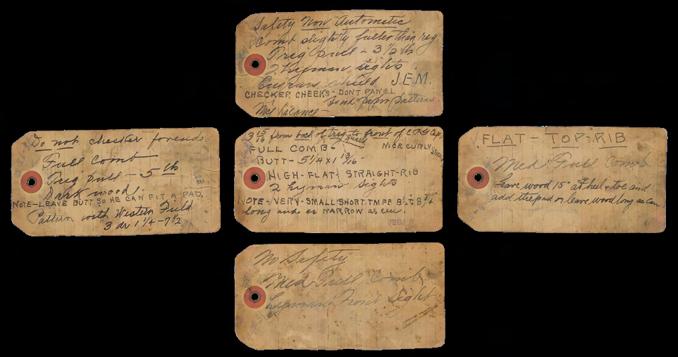 Safety Non Automatic
Comb slightly fuller than reg
Trig pull - 3 1/2 lb
2 Lyman sights
shield J.E.M.
CHECKER CHEEKS - DON'T PANEL
Send paper patterns
Do not checker forend
Full Comb
Trig pull - 5 lb
Dark wood
NOTE - LEAVE BUTT SO HE CAN FIT A PAD.
Pattern with Western Field
3 dr 1 1/4 - 7 1/2
from of trig to front of
FULL COMB - NICE CURLY
BUTT - 5 1/4 X 1 9/16
HIGH - FLAT - STRAIGHT - RIB
2 Lyman Sights
NOTE - VERY - SMALL - SHORT
long and as NARROW as
FLAT - TOP - RIB
Med Full Comb
Leave wood 15" at heel & toe and
add the pad or leave wood long as can
No Safety
Med Full Comb
Lyman Front Sight